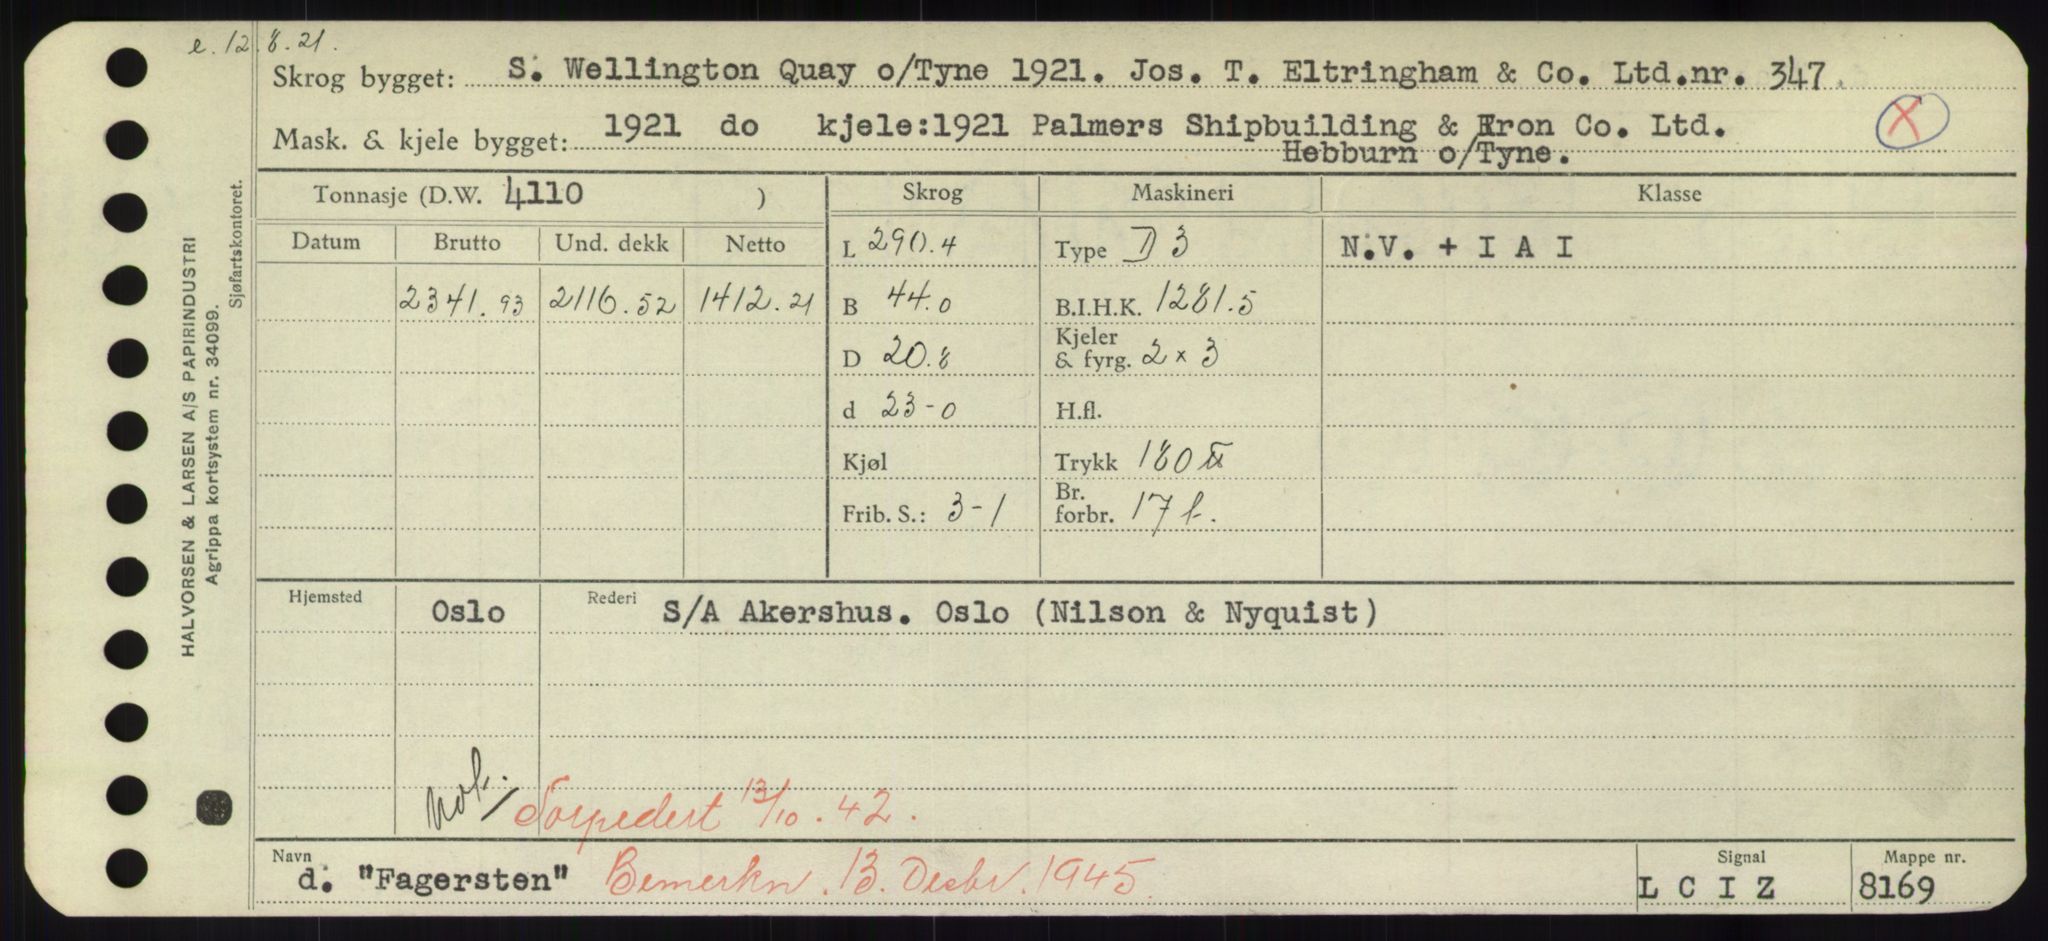 e. 12.8.21.
Skrog bygget: S. Wellington Quay o/Tyne 1921. Jos. T. Eltringham & Co. Ltd.nr. 347.
Mask. & kjele bygget: 1921 do kjele:1921 Palmers Shipbuilding & Iron Co. Ltd.
Hebburn o/Tyne.
X
Tonnasje (D.W. 4110 )
Skrog
Maskineri
Klasse
Datum Brutto Und. dekk Netto
L 290.4
Type D 3
N.V. + I A I
2341.93 2116.52 1412.21
B 44.0
B.I.H.K. 1281.5
D 20.8
Kjeler
& fyrg. 2 x 3
d 23-0
H.fl.
Kjøl
Trykk 180
Frib. S.: 3-1
Br.
forbr. 17 t.
Hjemsted Oslo Rederi S/A Akershus. Oslo (Nilson & Nyquist)
Torpedert 13/10.42.
Navn
d. "Fagersten" Bemerkn. 13. Desbr. 1945.
Signal
L C I Z
Mappe nr.
8169
HALVORSEN & LARSEN A/S PAPIRINDUSTRI
Agrippa kortsystem nr. 34099.
Sjøfartskontoret.